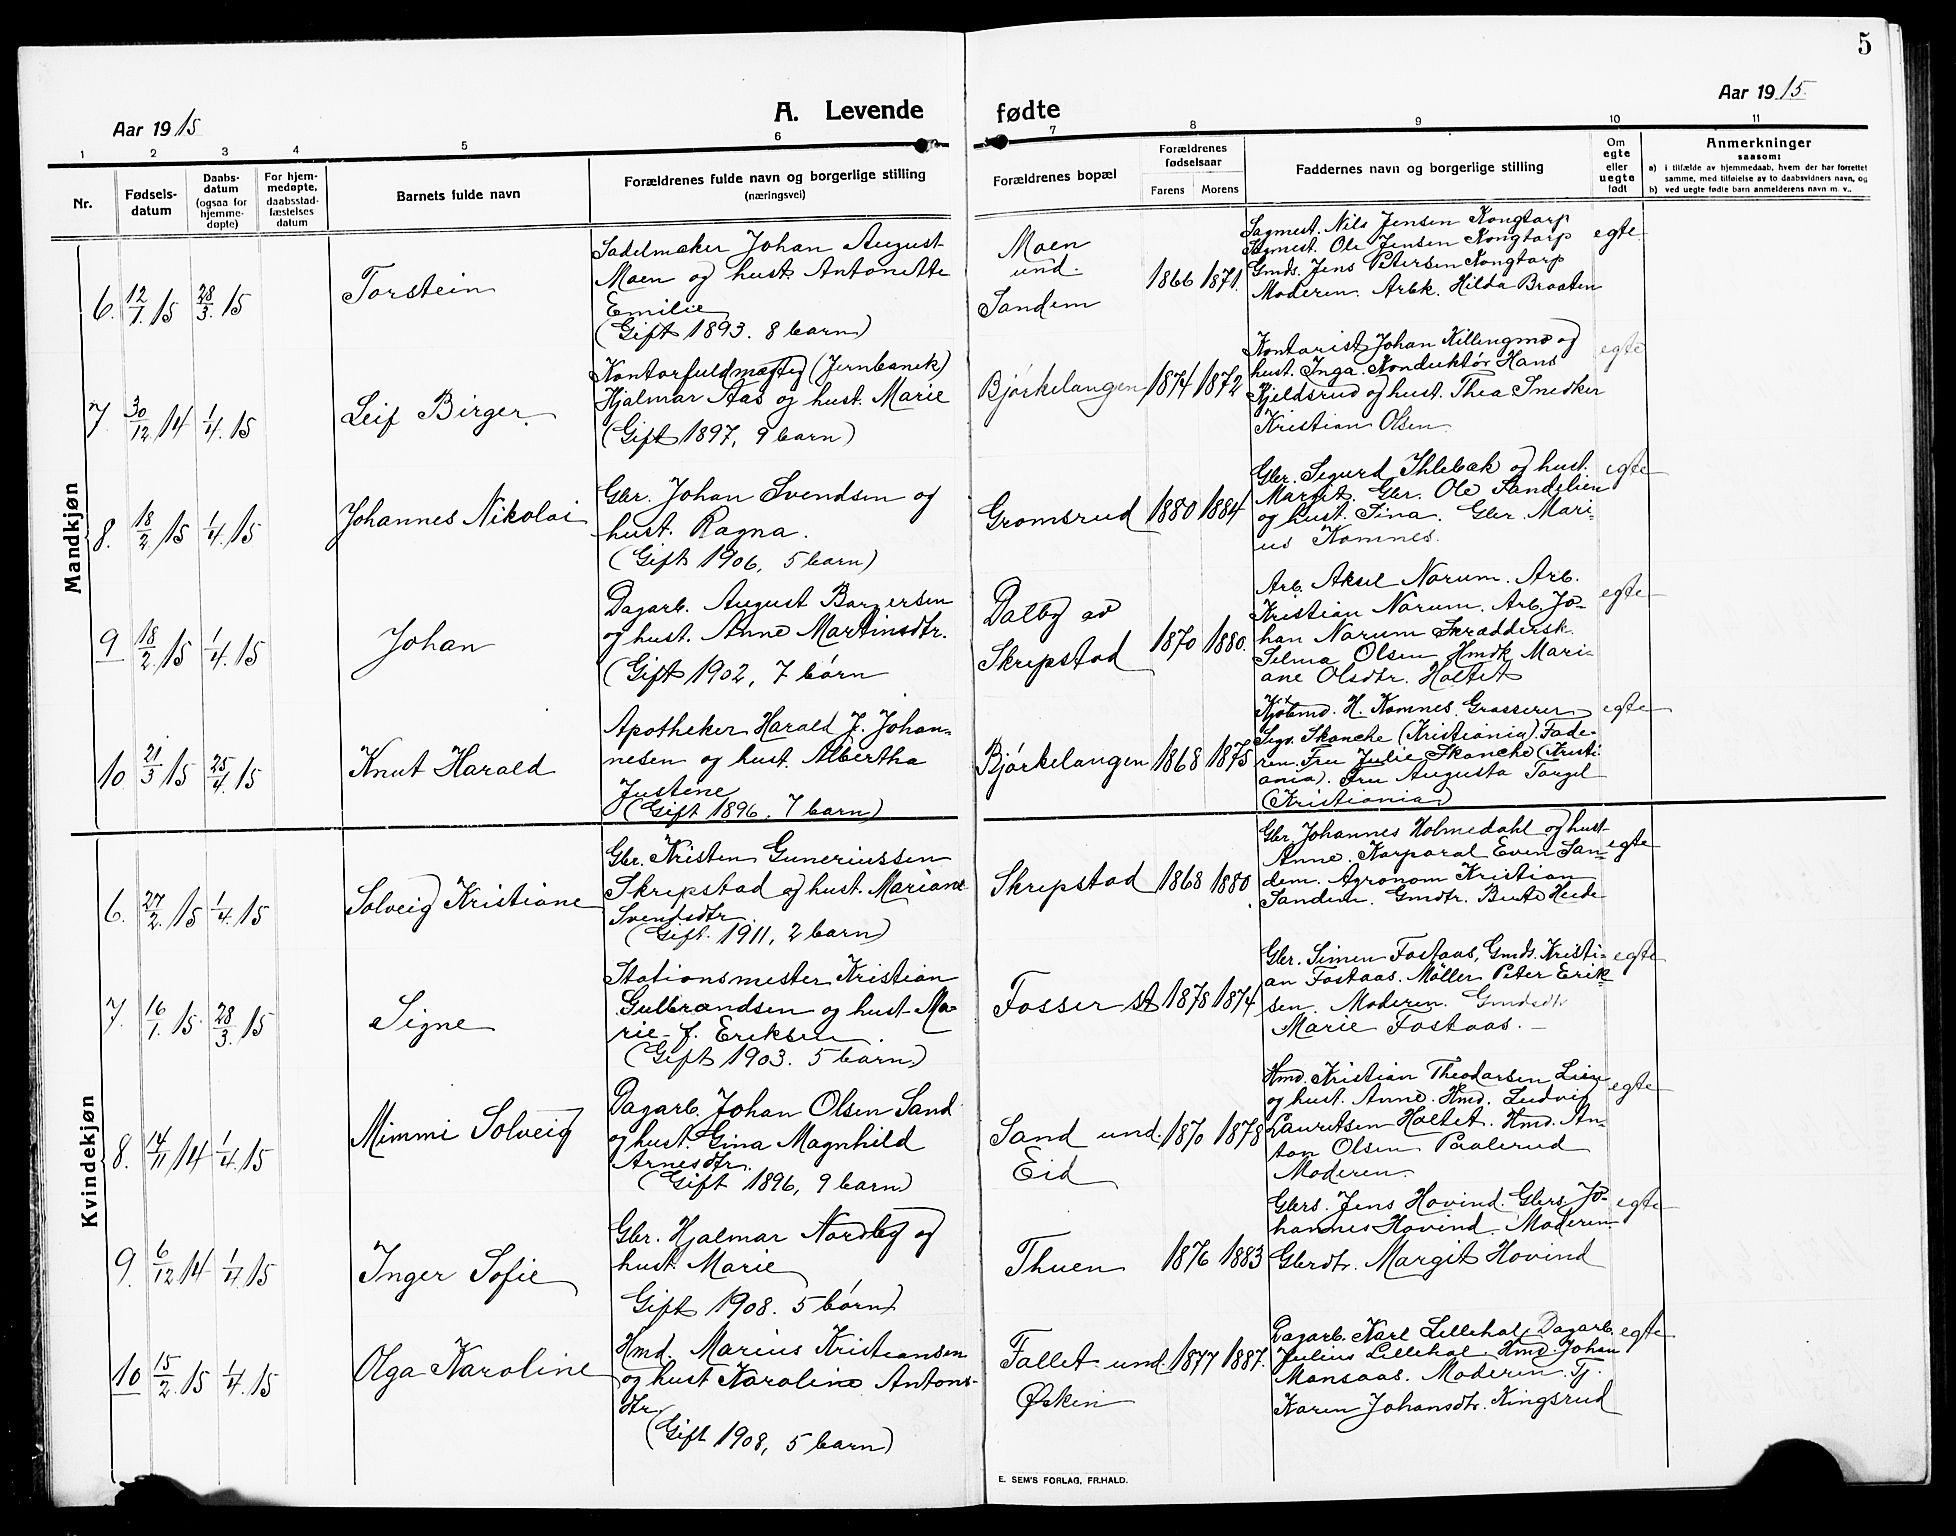 5
Aar 1915
A. Levende
fødte
Aar 1915.
1 2 3 4 5 6 7 8 9 10 11
Nr.
Fødsels-
datum
Daabs-
datum
(ogsaa for
hjemme-
døpte)
For hjem-
medøpte,
daabsstad-
fæstelses
datum
Barnets fulde navn
Forældrenes fulde navn og borgerlige stilling
(næringsvei)
Forældrenes bopæl
Forældrenes
fødselsaar
Farens
Morens
Faddernes navn og borgerlige stilling
Om
egte
eller
uegte
født
Anmerkninger
saasom:
a) i tilfælde av hjemmedaab, hvem der har forrettet
samme, med tilføielse av to daabsvidners navn, og
b) ved uegte fødte barn anmelderens navn m. v..
Mandkjøn
6. 12/1. 15 28/3. 15
Torstein
Sadelmaker Johan August
Moen og hust. Antonette
Emilie
(Gift 1893. 8 barn)
Moen
und.
Sandem
1866 1871.
Sagmest. Nils Jensen Kongtorp
Sagmest. Ole Jensen Kongtorp
Gmds. Jens Petersen Kongtorp
Moderen. Arbk. Hilda Braaten
egte
7 30/12 14 1/4. 15
Leif Birger.
Kontorfuldmægtig (Jernbanek)
Hjalmar Aas og hust. Marie
(Gift 1897, 9 barn)
Bjørkelangen
1874 1872
Kontorist Johan Killingmo og
hust. Inga. Konduktør Hans
Kjeldsrud og hust. Thea Snedker
Kristian Olsen.
egte
8. 18/2 15 1/4. 15
Johannes Nikolai
Gbr. Johan Svendsen og
hust. Ragna.
(Gift 1906, 5 barn)
Gromsrud
1880 1884
Gbr. Sigurd Ihlebæk og hust.
Margit. Gbr. Ole Sandelien
og hust. Sina. Gbr. Mari-
us Komnes.
egte
9 18/2. 15 1/4. 15
Johan
Dagarb. August Borgersen
og hust. Anne Martinsdtr.
(Gift 1902, 7 børn
Dalby av
Skrepstad
1870 1880.
Arb. Aksel Norum. Arb.
Kristian Norum. Arb. Jo-
han Norum Skræddersk.
Selma Olsen Hmdk Mari-
ane Olsdtr. Holtet
egte
10 21/3 15 25/4. 15
Knut Harald
Apotheker Harald J. Johan-
nesen og hust. Albertha
Justine
(Gift 1896. 7 barn)
Bjørkelangen
1868 1875
Kjøbmd. H. Komnes. Grosserer
Sigv. Skanche (Kristiania). Fade-
ren. Fru Julie Skanche (Kristi-
ania). Fru Augusta Torgel
(Kristiania)
egte
Kvindekjøn
6. 27/2. 15 1/4. 15
Solveig Kristiane
Gbr. Kristen Guneriussen
Skrepstad og hust. Mariane
Svendsdtr.
(Gift. 1911, 2 barn)
Skrepstad
1868 1880.
Gbr. Johannes Holmedahl og hust
Anne. Korporal Even San-
dem. Agronom Kristian
Sandem. Gmdtr. Berte Heede
egte
7. 16/1. 15. 28/3. 15
Signe
Stationsmester Kristian
Gulbrandsen og hust Ma-
rie f. Eriksen.
(Gift 1903. 5 barn.)
Fosser st
1878 1874
Gbr. Simen Fostaas, Gmds. Kristi-
an Fostaas. Møller Peter Erik-
sen. Moderen. Gmdsdtr
Marie Fostaas. —
egte
8. 14/11 14 1/4. 15
Mimmi Solveig
Dagarb. Johan Olsen Sand
og hust. Gina Magnhild
Arnesdtr.
(Gift 1896, 9 barn)
Sand und.
Eid
1870 1878
Hmd. Kristian Theodorsen Lien
og hust. Anne. Hmd. Ludvig
Lauritsen Holtet. Hmd. An-
ton Olsen Paalerud
Moderen.
egte
9. 6/12 14 1/4. 15
Inger Sofie
Gbr. Hjalmar Nordby og
hust. Marie
Gift 1908. 5 børn)
Thuen
1876 1883
Gbrs. Jens Hovind. Gbrs. Jo-
hannes Hovind. Moderen
Gbrdtr. Margit Hovind
egte
10 15/2. 15 1/4. 15
Olga Karoline
Hmd. Marius Kristiansen
og hust Karoline Antons-
dtr.
(Gift 1908, 5 barn)
Fallet und.
Ørkin
1877 1887.
Dagarb. Karl Lillehol. Dagarb.
Julius Lillehol Hmd. Johan
Monsaas. Moderen. Tj.
Karen Johansdtr. Kingsrud
egte
E. SEM'S FORLAG, FR.HALD.